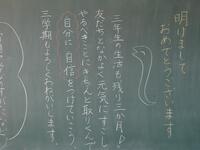 明けまして
おめでとうございます
三年生の生活も残り三か月♪
友だちとなかよく元気にすごし
やるべきことにきちんと取りくんで
自分に自信をつけていこう
三学期もよろしくおねがいします。